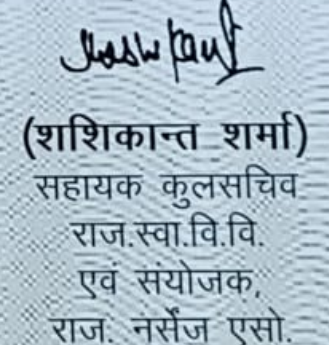 (शशिकान्त शर्मा)
सहायक कुलसचिव
राज.स्वा.वि.वि.
एवं संयोजक,
राज. नर्सेज एसो.